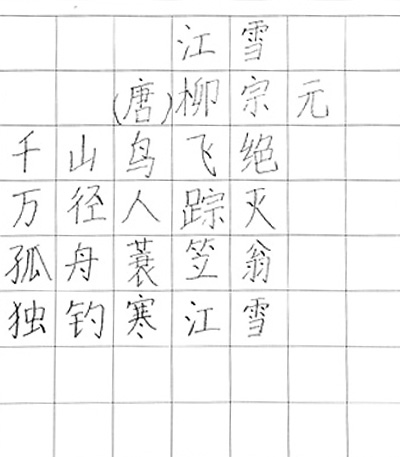 江雪
(唐)柳宗元
千山鸟飞绝
万径人踪灭
孤舟蓑笠翁
独钓寒江雪